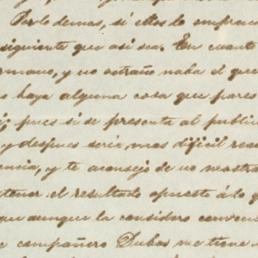 Por lo demas, si ellos lo empren
siguiente que asi sea. En cuanto
ermano, y no estraño nada el que
s haya alguna cosa que pares
; pues si se presenta al public
y despues seria mas dificil
encia, y te aconsejo de no
tener el resultado opuesto á lo q
que aunque la considero conven
e compañero Dubos me tiene